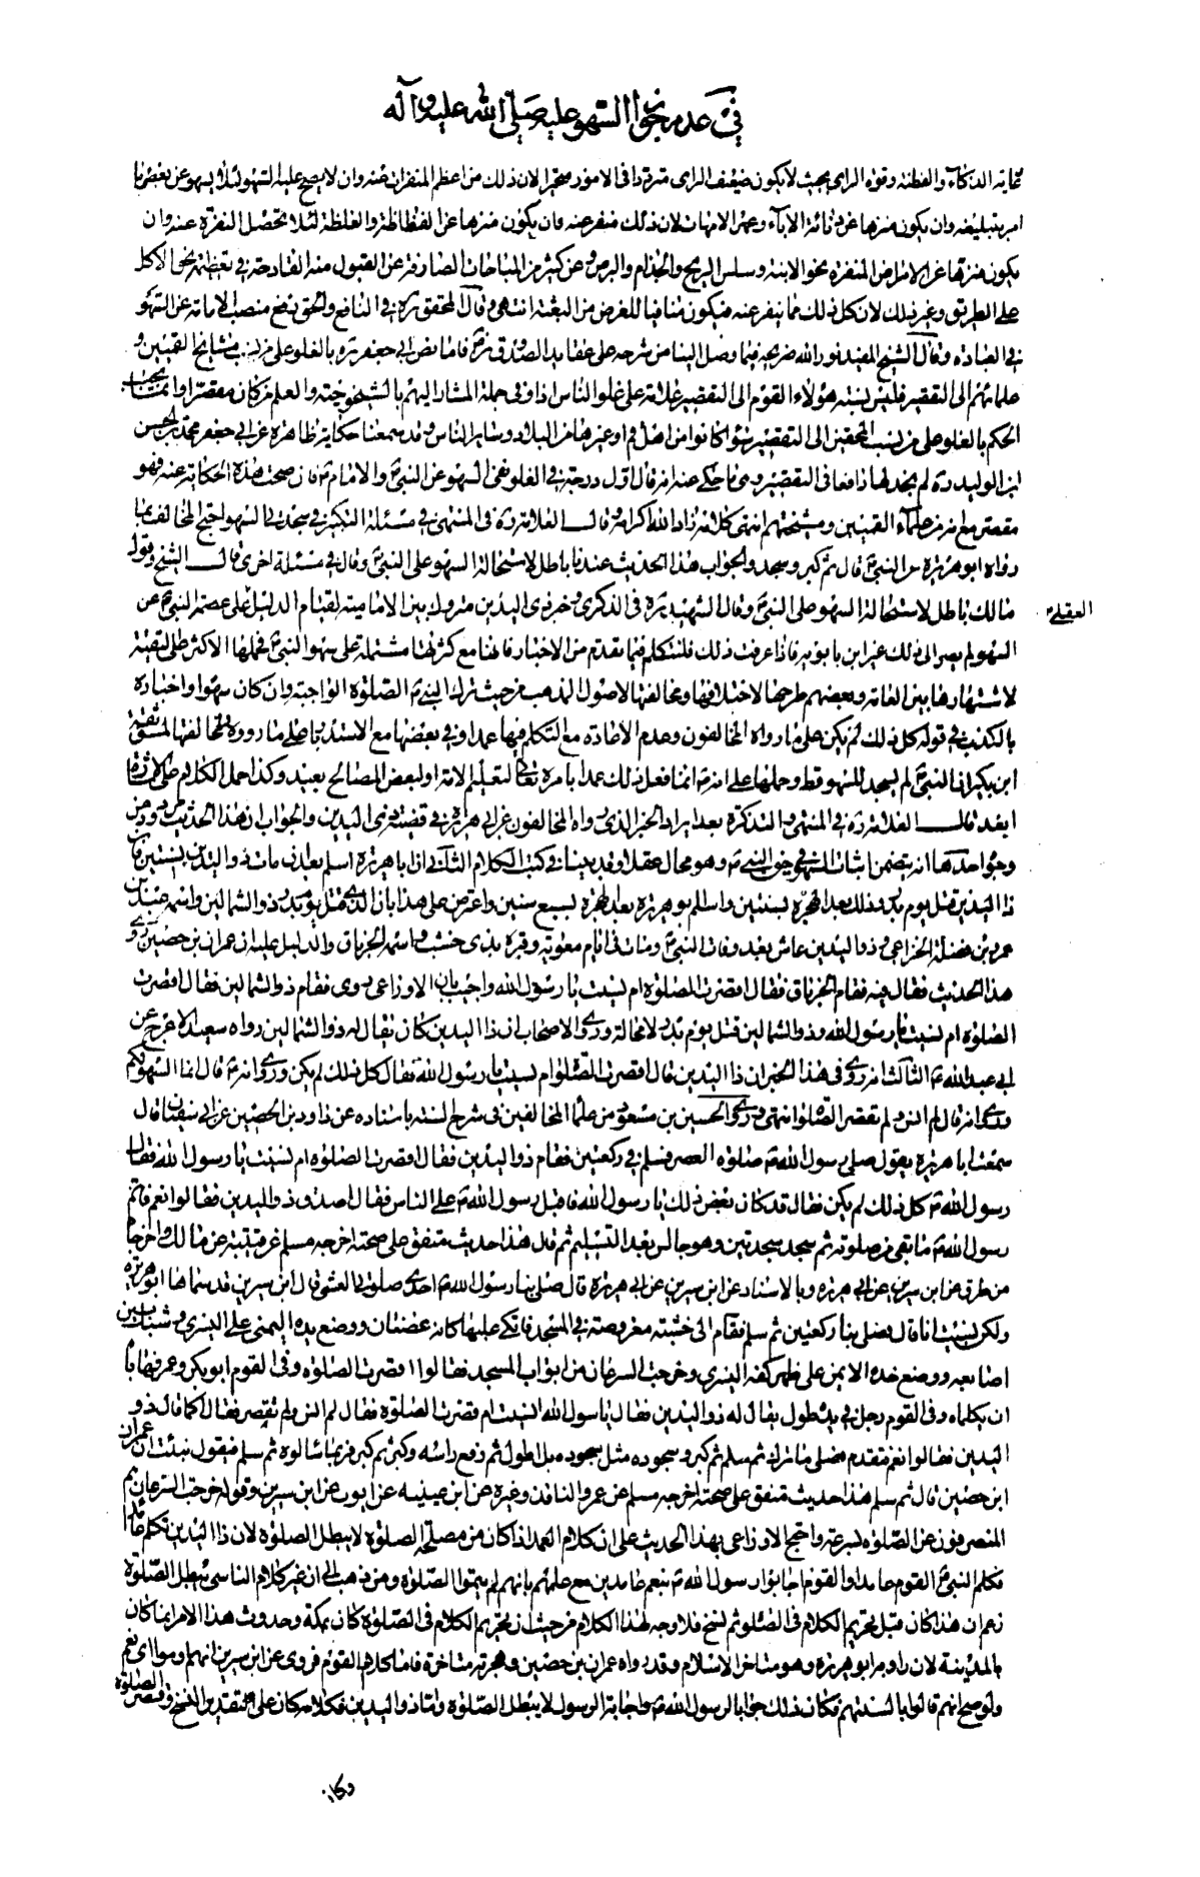 في عدم تجويز السهو عليه صلى الله عليه وآله
غاية الذكاء والفطنة وقوة الراى بحيث لا يكون ضعيف الراى مترددا فى الامور متحيرا لان ذلك من اعظم المنفرات عنه وان لا يصح عليه السهو لئلا يسهو عن بعض ما
امر بتبليغه وان يكون منزها عن دنائة الاباء وعهر الامهات لان ذلك منفر عنه وان يكون منزها عن الفظاظة والغلظة لئلا تحصل النفرة عنه وان
يكون منزها عن الامراض المنفرة نحو الابنة وسلس الريح والجذام والبرص وعن كثير من المباحات الصارفة عن القبول منه القادحة فى تعظيمه نحو الاكل
على الطريق وغير ذلك لان كل ذلك مما ينفر عنه فيكون منافيا للغرض من البعثة انتهى وقال المحقق ره فى النافع والحق رفع منصب الامامة عن السهو
فى العبادة وقال الشيخ المفيد نور الله ضريحه فيما وصل الينا من شرحه على عقايد الصدوق ره فاما نص ابى جعفر ره بالغلو على من نسب مشايخ القميين و
علمائهم الى التقصير فليس نسبة هؤلاء القوم الى التقصير علامة على غلو الناس اذ وفى جملة المشار اليهم بالشيخوخية والعلم من كان مقصرا وانما يجب
الحكم بالغلو على من نسب المحقين الى التقصير سواء كانوا من اهل قم او غيرها من البلاد وساير الناس وقد سمعنا حكاية ظاهرة عن ابى جعفر محمد بن الحسن
ابن الوليد ره لم نجد لها دافعا فى التقصير وهى ما حكى عنه انه قال اول درجة فى الغلو نفى السهو عن النبى ص والامام ع فان صحت هذه الحكاية عنه فهو
مقصر مع انه من علماء القميين ومشيختهم انتهى كلامه زاد الله اكرامه وقال العلامة ره فى المنتهى فى مسئلة التكبير فى سجدتى السهو احتج المخالف بما
رواه ابو هريرة عن النبى ص قال ثم كبر وسجد والجواب هذا الحديث عندنا باطل لاستحالة السهو على النبى ص وقال فى مسئلة اخرى قال الشيخ وقول
مالك باطل لاستحالة السهو على النبى ص وقال الشهيد ره فى الذكرى وخبر ذى اليدين متروك بين الامامية لقيام الدليل على عصمة النبى ص عن
العقلى
السهو لم يصر الى ذلك غير ابن بابويه فاذا عرفت ذلك فلنتكلم فيما تقدم من الاخبار فانها مع كثرتها مشتملة على سهو النبى ص فحملها الاكثر على التقية
لاشتهارها بين العامة وبعضهم طرحها لاختلافها ومخالفتها لاصول المذهب من حيث ترك النبى ص الصلوة الواجبة وان كان سهوا واخباره
بالكذب فى قوله كل ذلك لم يكن على ما رواه المخالفون وعدم الاعادة مع التكلم فيها عمدا وفى بعضها مع الاستدبار على ما رووه ومخالفتها لموثقة
ابن بكير ان النبى ص لم يسجد للسهو قط وحملها على انه ص انما فعل ذلك عمدا بامره تعالى لتعليم الامة او لبعض المصالح بعيد وكذا حمل الكلام على الاشارة
ابعد قال العلامة ره فى المنتهى والتذكرة بعد ايراد الخبر الذى رواه المخالفون عن ابى هريرة فى قصة ذى اليدين والجواب ان هذا الحديث مردود من
وجوه احدها انه يتضمن اثبات السهو فى حق النبى ص وهو محال عقلا وقد بينا فى كتب الكلام الثانى ان ابا هريرة اسلم بعد ان مات ذو اليدين بسنتين فان
ذا اليدين قتل يوم بدر وذلك بعد الهجرة بسنتين واسلم ابو هريرة بعد الهجرة بسبع سنين واعترض على هذا بان الذى قتل يوم بدر ذو الشمالين واسمه عبد بن
عمرو بن نضلة الخزاعى وذو اليدين عاش بعد وفات النبى ص ومات فى ايام معوية وقبره بذى خشب واسمه الخرباق والدليل عليه ان عمران بن حصين روى
هذا الحديث فقال فيه فقام الخرباق فقال اقصرت الصلوة ام نسيت يا رسول الله واجيب بان الاوزاعى روى فقام ذو الشمالين فقال اقصرت
الصلوة ام نسيت يا رسول الله وذو الشمالين قتل يوم بدر لا محالة وروى الاصحاب ان ذا اليدين كان يقال له ذو الشمالين رواه سعيد الاعرج عن
ابى عبد الله ع الثالث انه روى فى هذا الخبر ان ذا اليدين قال اقصرت الصلوة ام نسيت يا رسول الله فقال كل ذلك لم يكن وروى انه ص قال انما السهو لكم
وروى انه قال لم انس ولم تقصر الصلوة انتهى وروى الحسين بن مسعود من علماء المخالفين فى شرح السنة باسناده عن داود بن الحصين عن ابى سفيان قال
سمعت ابا هريرة يقول صلى رسول الله ص صلوة العصر فسلم فى ركعتين فقام ذو اليدين فقال اقصرت الصلوة ام نسيت يا رسول الله فقال
رسول الله ص كل ذلك لم يكن فقال قد كان بعض ذلك يا رسول الله فاقبل رسول الله ص على الناس فقال اصدق ذو اليدين فقالوا نعم فاتم
رسول الله ص ما بقى من صلوته ثم سجد سجدتين وهو جالس بعد التسليم ثم قال هذا حديث متفق على صحته اخرجه مسلم عن قتيبة عن مالك واخرجا
من طرق عن ابن سيرين عن ابى هريرة وبالاسناد عن ابن سيرين عن ابى هريرة قال صلى بنا رسول الله ص احدى صلوتى العشى قال ابن سيرين قد سماها ابو هريرة
ولكن نسيت انا قال فصلى بنا ركعتين ثم سلم فقام الى خشبة معروضة فى المسجد فاتكى عليها كانه غضبان ووضع يده اليمنى على اليسرى وشبك بين
اصابعه ووضع خده الايمن على ظهر كفه اليسرى وخرجت السرعان من ابواب المسجد فقالوا اقصرت الصلوة وفى القوم ابو بكر وعمر فهابا
ان يكلماه وفى القوم رجل فى يديه طول يقال له ذو اليدين فقال يا رسول الله انسيت ام قصرت الصلوة فقال لم انس ولم تقصر فقال اكما قال ذو
اليدين فقالوا نعم فتقدم فصلى ما ترك ثم سلم ثم كبر وسجوده مثل سجوده او اطول ثم رفع راسه وكبر ثم كبر فربما سالوه ثم سلم فيقول نبئت ان عمران
ابن حصين قال ثم سلم هذا حديث متفق على صحته اخرجه مسلم عن عمرو الناقد وغيره عن ابن عيينة عن ايوب عن ابن سيرين وقوله خرجت السرعان هم
المنصرفون عن الصلوة بسرعة واحتج الاوزاعى بهذا الحديث على ان كلام العمد اذا كان من مصلحة الصلوة لا يبطل الصلوة لان ذا اليدين تكلم عامدا
فكلم النبى ص القوم عامدا والقوم اجابوا رسول الله ص بنعم عامدين مع علمهم بانهم لم يتموا الصلوة ومن ذهب الى ان غير كلام الناسى يبطل الصلوة
زعم ان هذا كان قبل تحريم الكلام فى الصلوة ثم نسخ فلا وجه لهذا الكلام من حيث ان تحريم الكلام فى الصلوة كان بمكة وحدوث هذا الامر انما كان
بالمدينة لان راويه ابو هريرة وهو متاخر الاسلام وقد رواه عمران بن حصين وهجرته متاخرة فاما كلام القوم فروى عن ابن سيرين انهم اومؤا اى نعم
ولو صح انهم قالوا بالسنتهم فكان ذلك جوابا لرسول الله ص واجابة الرسول لا يبطل الصلوة واما ذو اليدين فكلامه كان على تقدير النسخ وقصر الصلوة
وكان